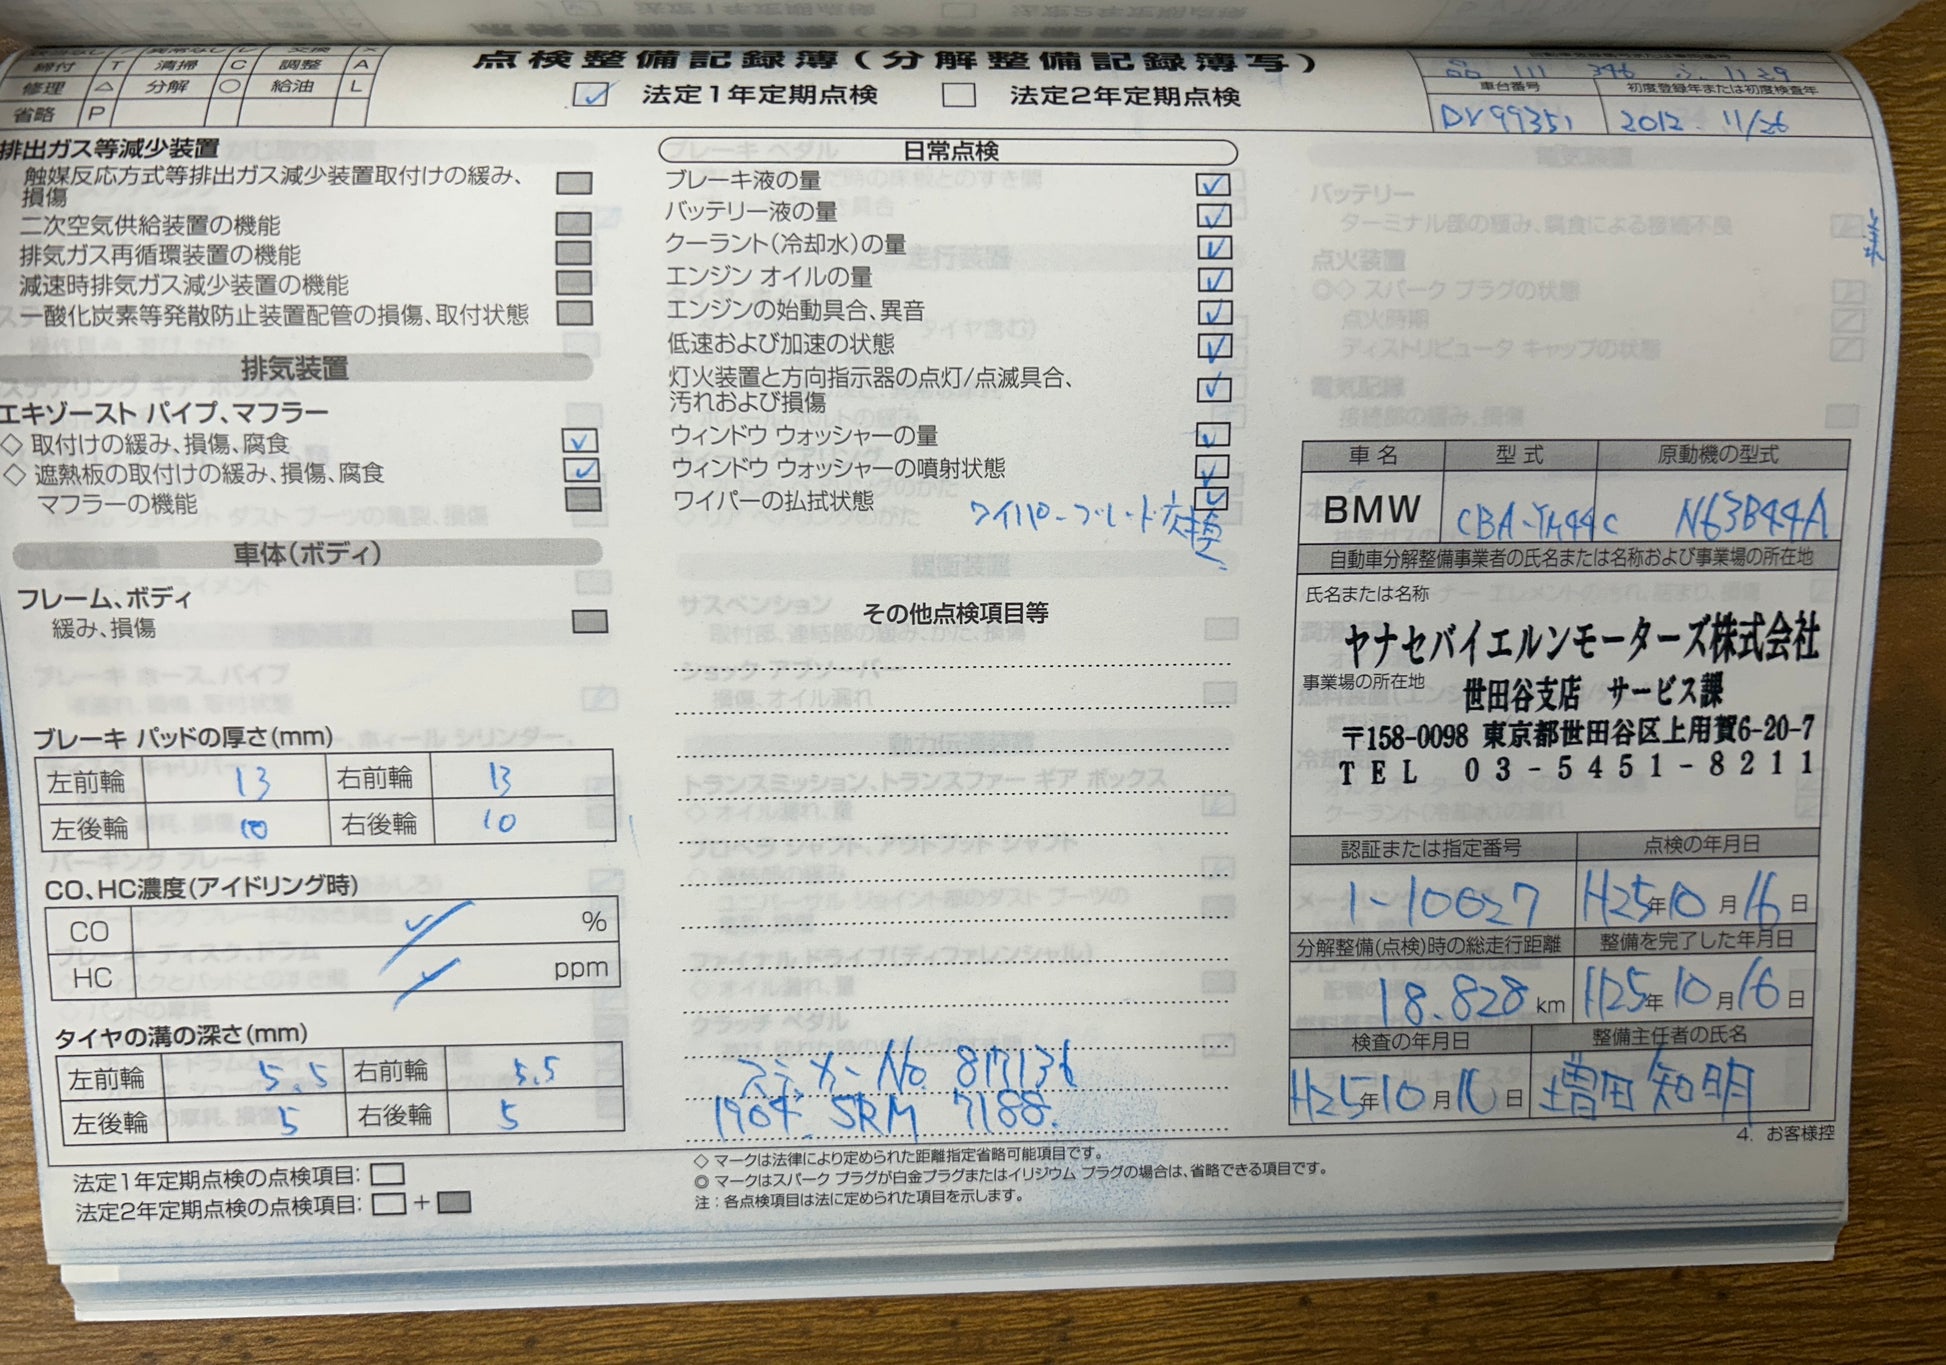 点検整備記録簿(分解整備記録簿写)
締付 T 清掃 C 調整 A
修理 △ 分解 ○ 給油 L
省略 P
法定1年定期点検 法定2年定期点検
車台番号 初度登録年または初度検査年
DV99351 2012. 11/26
排出ガス等減少装置
触媒反応方式等排出ガス減少装置取付けの緩み、
損傷
二次空気供給装置の機能
排気ガス再循環装置の機能
減速時排気ガス減少装置の機能
一酸化炭素等発散防止装置配管の損傷、取付状態
排気装置
エキゾースト パイプ、マフラー
◇ 取付けの緩み、損傷、腐食
◇ 遮熱板の取付けの緩み、損傷、腐食
マフラーの機能
車体(ボディ)
フレーム、ボディ
緩み、損傷
ブレーキ パッドの厚さ(mm)
左前輪 13 右前輪 13
左後輪 10 右後輪 10
CO、HC濃度(アイドリング時)
CO %
HC ppm
タイヤの溝の深さ(mm)
左前輪 5.5 右前輪 5.5
左後輪 5 右後輪 5
法定1年定期点検の点検項目:
法定2年定期点検の点検項目: +
日常点検
ブレーキ液の量
バッテリー液の量
クーラント(冷却水)の量
エンジン オイルの量
エンジンの始動具合、異音
低速および加速の状態
灯火装置と方向指示器の点灯/点滅具合、
汚れおよび損傷
ウィンドウ ウォッシャーの量
ウィンドウ ウォッシャーの噴射状態
ワイパーの払拭状態
ワイパーブレード交換
その他点検項目等
ステッカーNo. 817136
1904. SRM 7188.
◇ マークは法律により定められた距離指定省略可能項目です。
◎ マークはスパーク プラグが白金プラグまたはイリジウム プラグの場合は、省略できる項目です。
注:各点検項目は法に定められた項目を示します。
車名 型式 原動機の型式
BMW CBA-YM44C N63B44A
自動車分解整備事業者の氏名または名称および事業場の所在地
氏名または名称
ヤナセバイエルンモーターズ株式会社
事業場の所在地
世田谷支店 サービス課
〒158-0098 東京都世田谷区上用賀6-20-7
TEL 03-5451-8211
認証または指定番号 点検の年月日
1-10027 H25年10月16日
分解整備(点検)時の総走行距離 整備を完了した年月日
18.828 km H25年10月16日
検査の年月日 整備主任者の氏名
H25年10月16日 増田 知明
4. お客様控